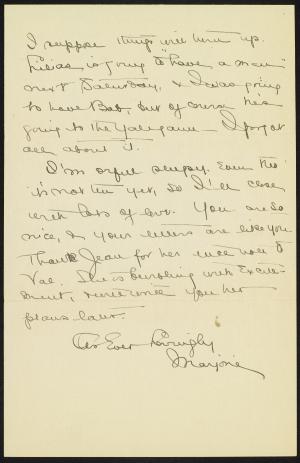 I suppose things will turn up.
Lilias is going to "have a man"
next Saturday, & I was going
to have Bob, but of course he's
going to the Yale game — I forgot
all about it.
I'm orful sleepy, even tho'
it's not ten yet, so I'll close
with lots of love. You are so
nice, & your letters are like you
Thank Jean for her nice note to
Val. She is bursting with excite-
ment, & will write you her
plans later.
As Ever Lovingly
Marjorie